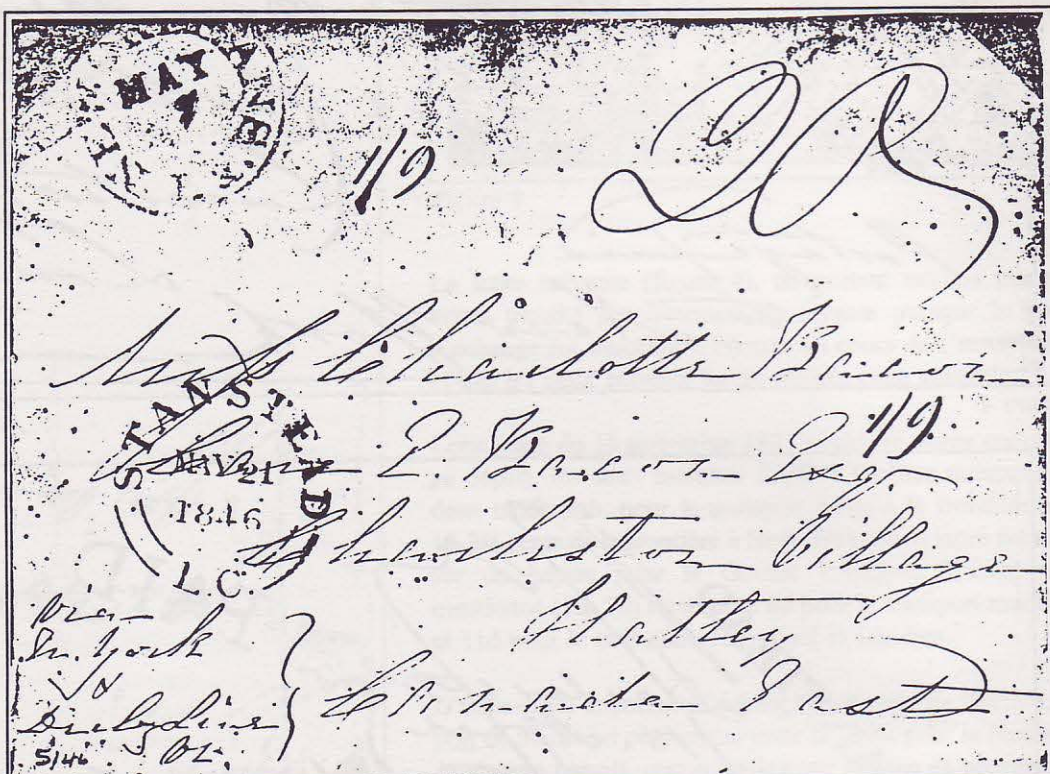 MAY
7
1/9
20
Miss Charlotte Bacon
1/9
L. Bacon Esq
STANSTEAD
MAY 21
1846
L.C.
Charleston Village
Hatley
Canada East
via
N. York
&
Derby Line
Vt.
5/46